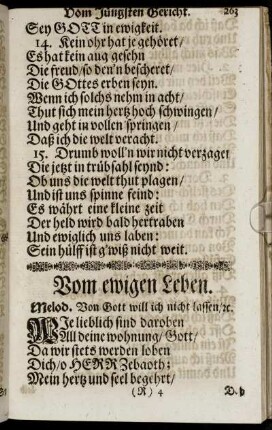 Vom Jüngsten Gericht. 203
Sey GOTT in ewigkeit.
14. Kein ohr hat je gehöret/
Es hat kein aug gesehn
Die freud/ so den'n bescheret/
Die GOttes erben seyn.
Wenn ich solchs nehm in acht/
Thut sich mein hertz hoch schwingen/
Und geht in vollen springen/
Daß ich die welt veracht.
15. Drumb woll'n wir nicht verzagen
Die jetzt in trübsahl seynd:
Ob uns die welt thut plagen/
Und ist uns spinne feind:
Es währt eine kleine zeit
Der held wird bald hertraben
Und ewiglich uns laben:
Sein hülff ist g'wiß nicht weit.
Vom ewigen Leben.
Melod. Von Gott will ich nicht lassen/ ꝛc.
WJe lieblich sind daroben
All deine wohnung/ Gott/
Da wir stets werden loben
Dich/ o HERR Zebaoth:
Mein hertz und seel begehrt/
(R) 4 D. h